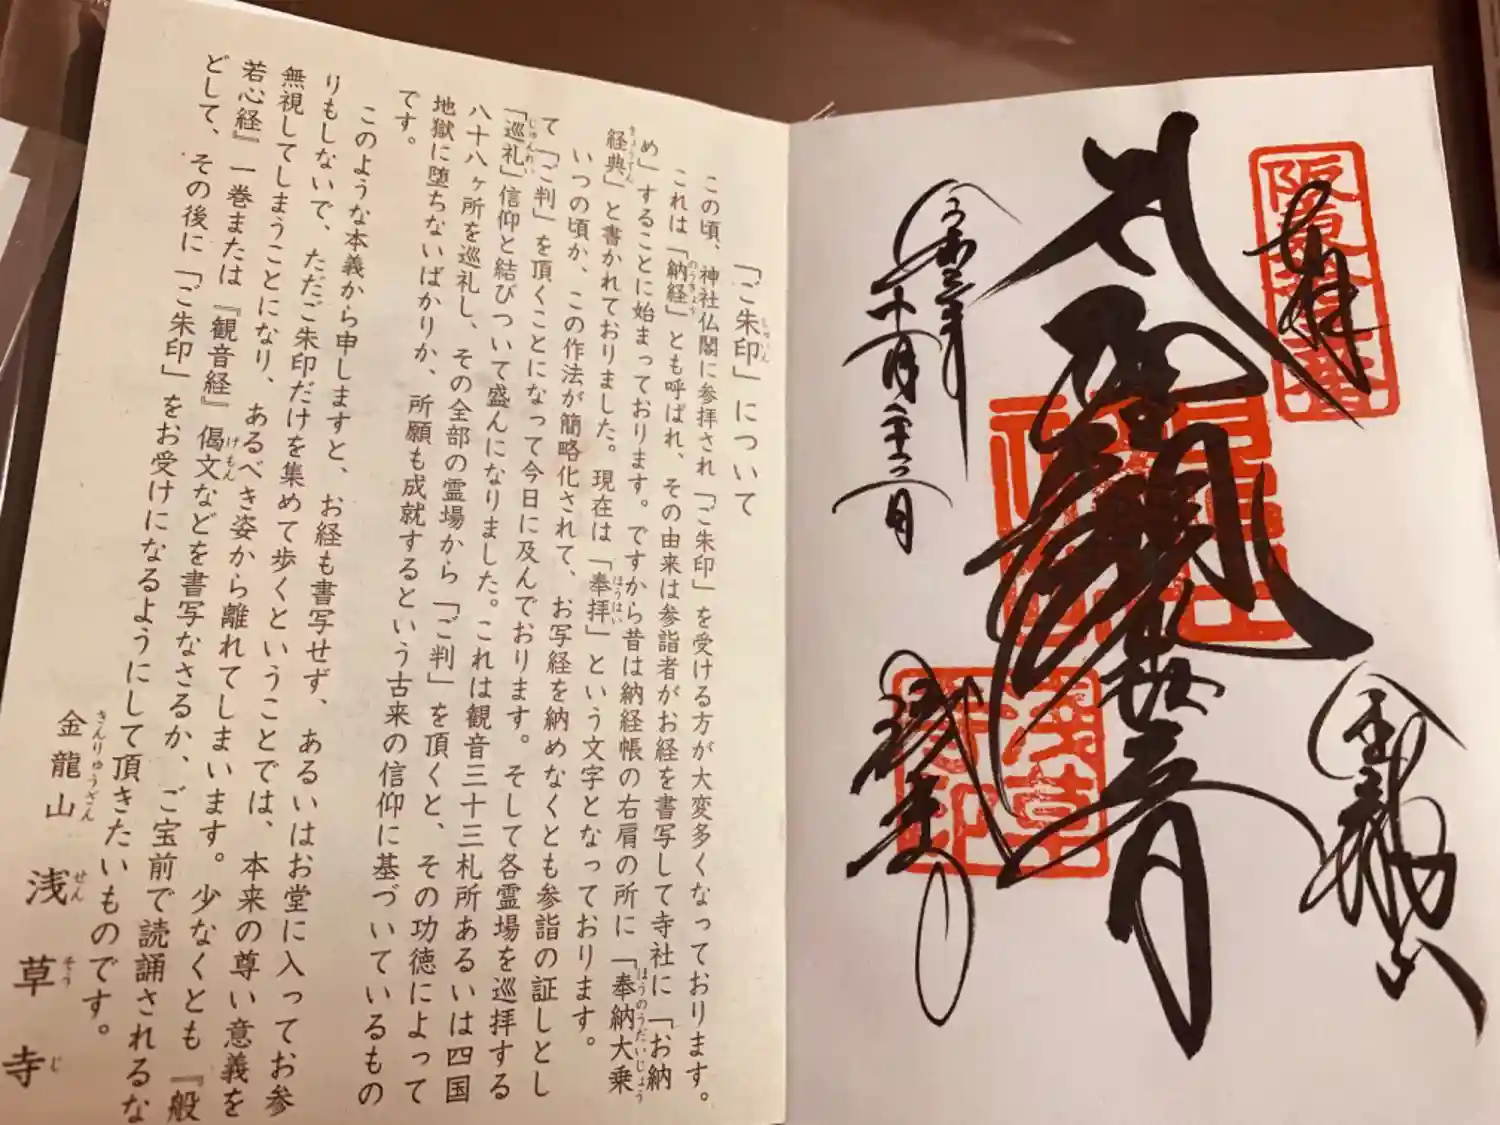 「ご朱印」について
この頃、神社仏閣に参拝され「ご朱印」を受ける方が大変多くなっております。
これは「納経」とも呼ばれ、その由来は参詣者がお経を書写して寺社に「お納
め」することに始まっております。ですから昔は納経帳の右肩の所に「奉納大乗
経典」と書かれておりました。現在は「奉拝」という文字となっております。
いつの頃か、この作法が簡略化されて、お写経を納めなくとも参詣の証しとし
て「ご判」を頂くことになって今日に及んでおります。そして各霊場を巡拝する
「巡礼」信仰と結びついて盛んになりました。これは観音三十三札所あるいは四国
八十八ヶ所を巡礼し、その全部の霊場から「ご判」を頂くと、その功徳によって
地獄に堕ちないばかりか、所願も成就するという古来の信仰に基づいているもの
です。
このような本義から申しますと、お経も書写せず、あるいはお堂に入ってお参
りもしないで、ただご朱印だけを集めて歩くということでは、本来の尊い意義を
無視してしまうことになり、あるべき姿から離れてしまいます。少なくとも『般
若心経』一巻または『観音経』偈文などを書写なさるか、ご宝前で読誦されるな
どして、その後に「ご朱印」をお受けになるようにして頂きたいものです。
金龍山 浅草寺
奉拝
阪東十三番
聖観世音
金龍山
浅草寺
浅草寺印